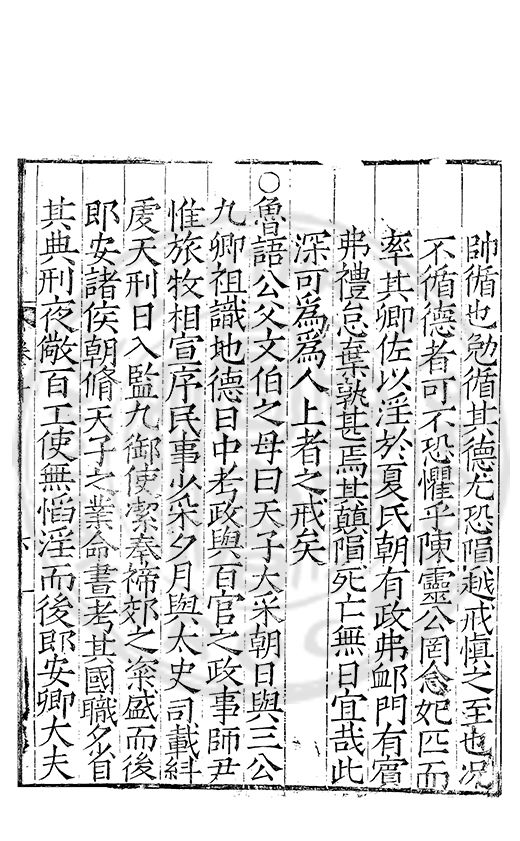 帥循也勉循其德尤恐隕越戒慎之至也況
不循德者可不恐懼乎陳靈公罔念妃匹而
率其卿佐以淫於夏氏朝有政弗䘏門有賓
弗禮怠棄孰甚焉其顛隕死亡無日宜哉此
深可為為人上者之戒矣
○魯語公父文伯之母曰天子大采朝日與三公
九卿祖識地德日中考政與百官之政事師尹
惟旅牧相宣序民事少采夕月與太史司載糾
虔天刑日入監九御使潔奉禘郊之粢盛而後
即安諸侯朝脩天子之業命晝考其國職夕省
其典刑夜儆百工使無慆淫而後即安卿大夫